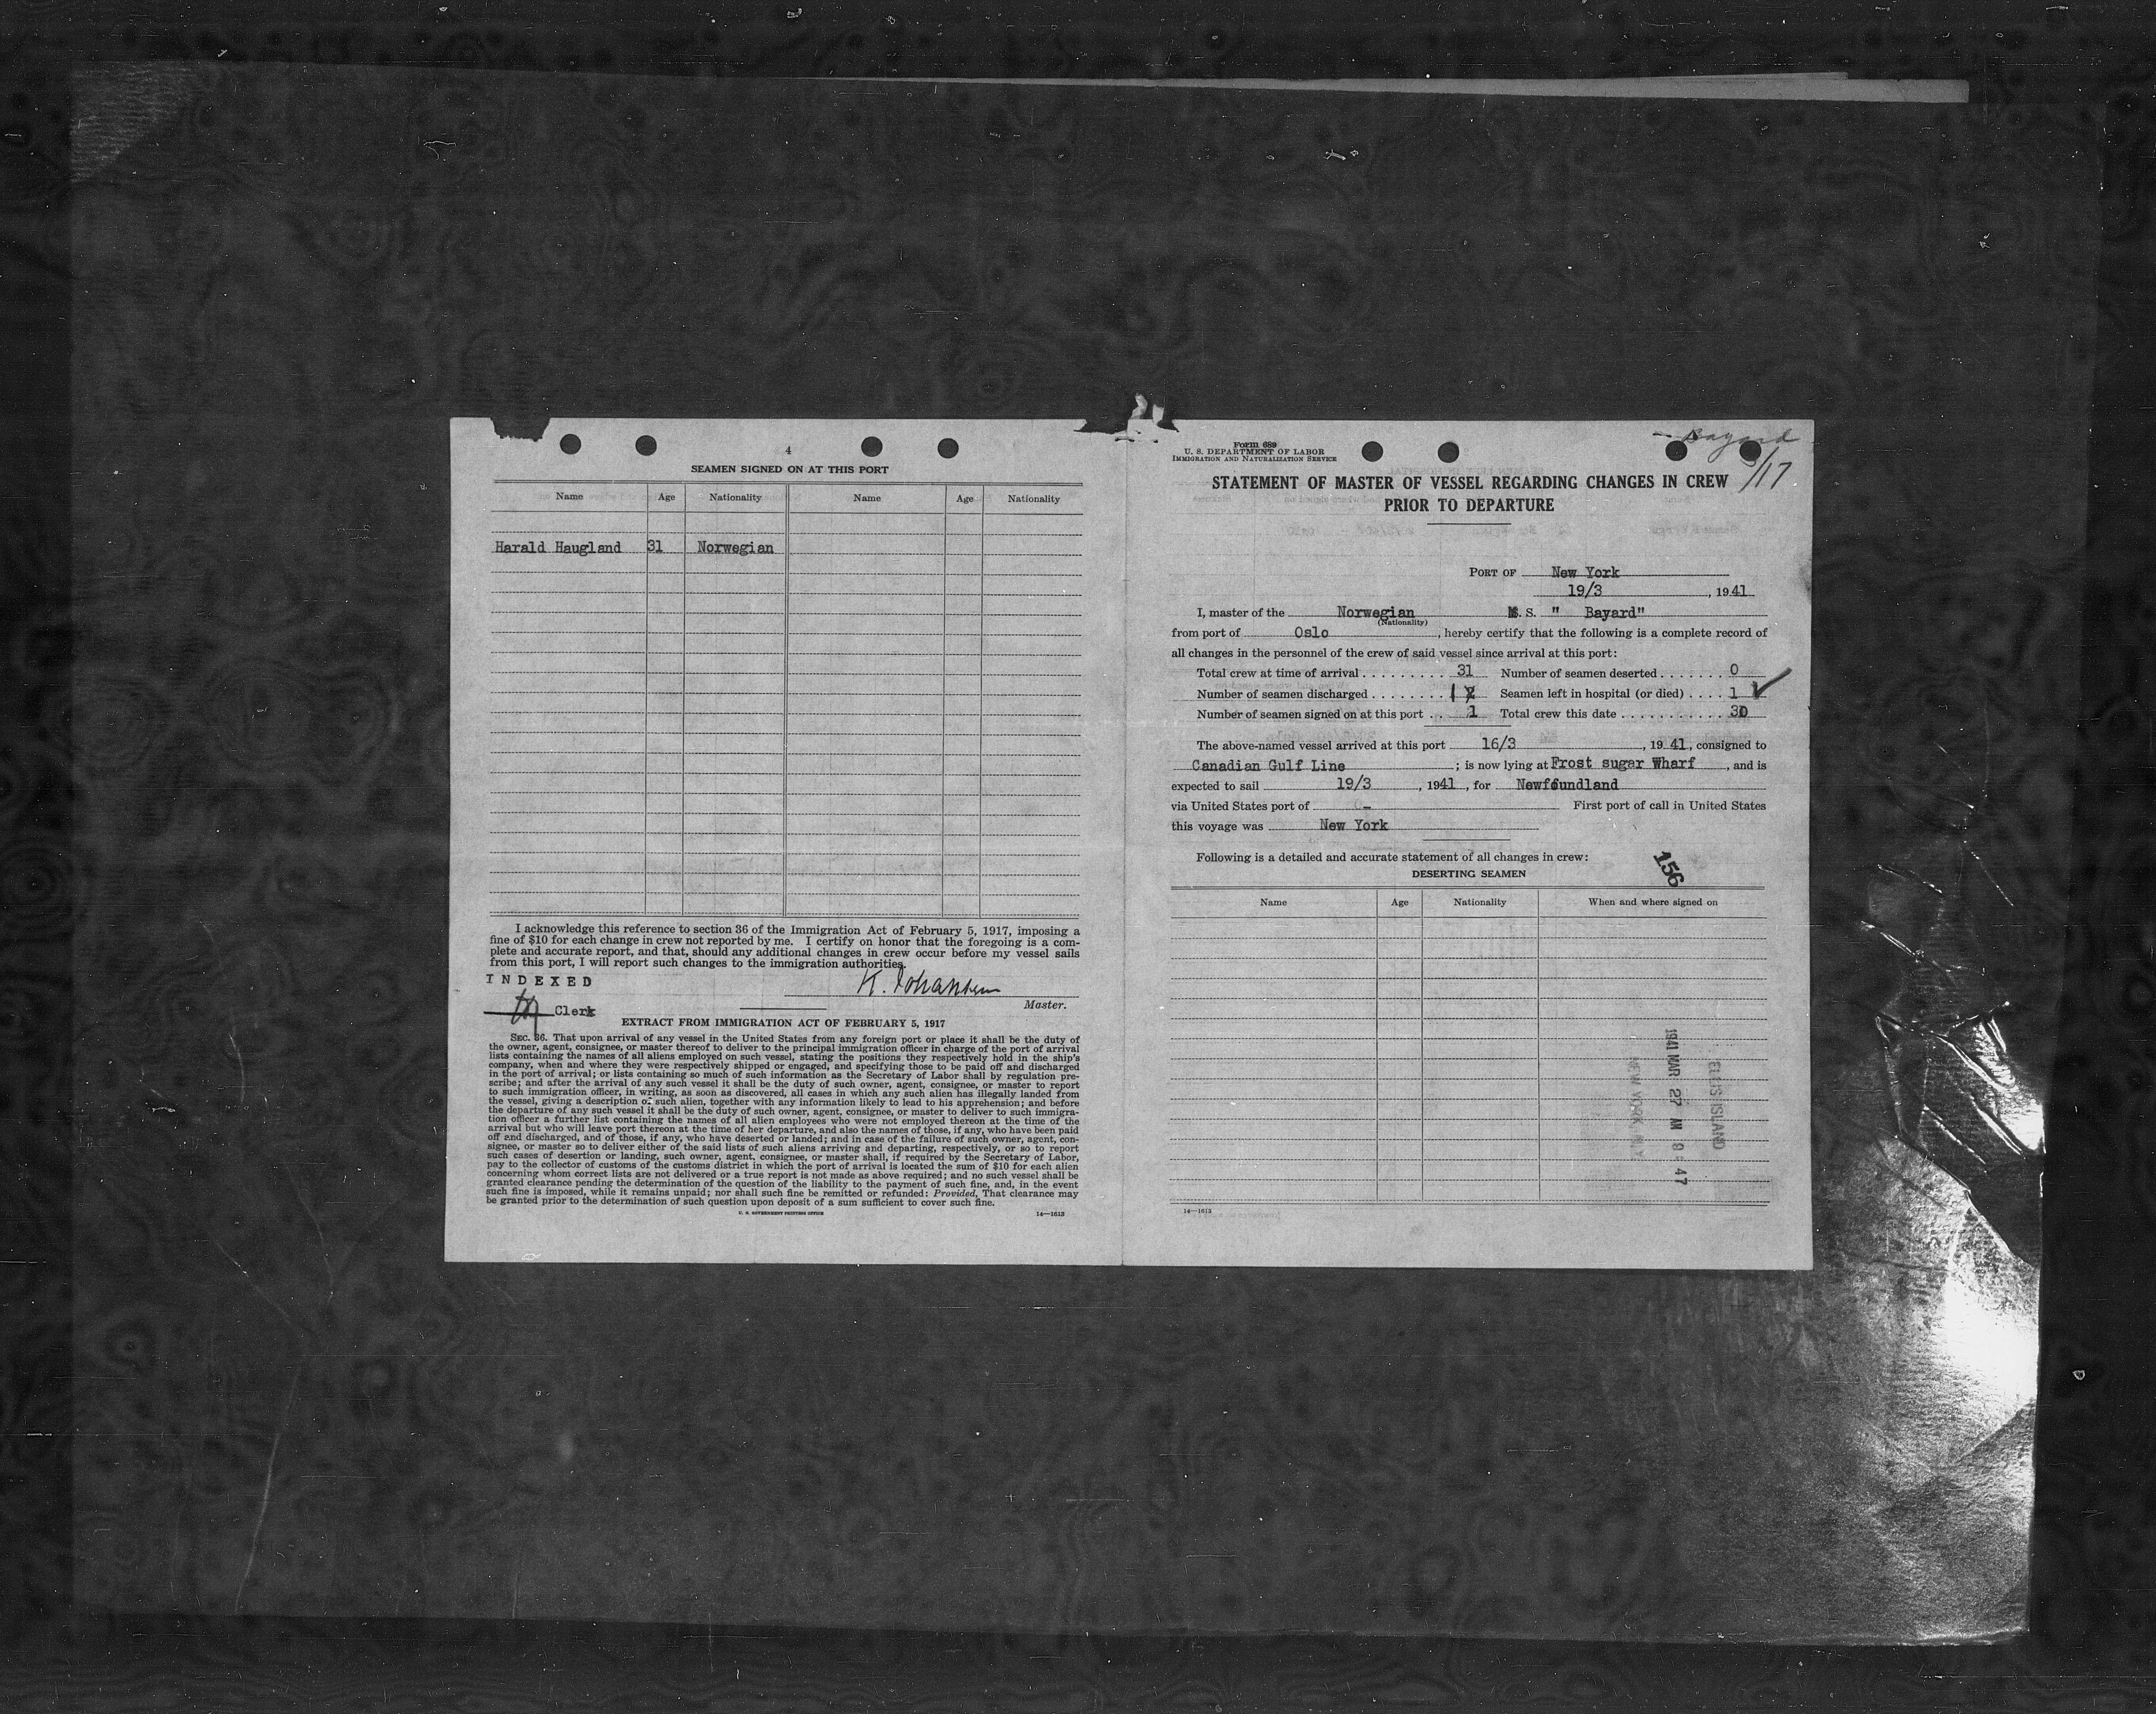 4
SEAMEN SIGNED ON AT THIS PORT
Name Age Nationality Name Age Nationality
Harald Haugland 31 Norwegian
I acknowledge this reference to section 36 of the Immigration Act of February 5, 1917, imposing a
fine of $10 for each change in crew not reported by me. I certify on honor that the foregoing is a com-
plete and accurate report, and that, should any additional changes in crew occur before my vessel sails
from this port, I will report such changes to the immigration authorities.
INDEXED
K. Johansen
Master.
Clerk
EXTRACT FROM IMMIGRATION ACT OF FEBRUARY 5, 1917
SEC. 36. That upon arrival of any vessel in the United States from any foreign port or place it shall be the duty of
the owner, agent, consignee, or master thereof to deliver to the principal immigration officer in charge of the port of arrival
lists containing the names of all aliens employed on such vessel, stating the positions they respectively hold in the ship's
company, when and where they were respectively shipped or engaged, and specifying those to be paid off and discharged
in the port of arrival; or lists containing so much of such information as the Secretary of Labor shall by regulation pre-
scribe; and after the arrival of any such vessel it shall be the duty of such owner, agent, consignee, or master to report
to such immigration officer, in writing, as soon as discovered, all cases in which any such alien has illegally landed from
the vessel, giving a description of such alien, together with any information likely to lead to his apprehension; and before
the departure of any such vessel it shall be the duty of such owner, agent, consignee, or master to deliver to such immigra-
tion officer a further list containing the names of all alien employees who were not employed thereon at the time of the
arrival but who will leave port thereon at the time of her departure, and also the names of those, if any, who have been paid
off and discharged, and of those, if any, who have deserted or landed; and in case of the failure of such owner, agent, con-
signee, or master so to deliver either of the said lists of such aliens arriving and departing, respectively, or so to report
such cases of desertion or landing, such owner, agent, consignee, or master shall, if required by the Secretary of Labor,
pay to the collector of customs of the customs district in which the port of arrival is located the sum of $10 for each alien
concerning whom correct lists are not delivered or a true report is not made as above required; and no such vessel shall be
granted clearance pending the determination of the question of the liability to the payment of such fine, and, in the event
such fine is imposed, while it remains unpaid; nor shall such fine be remitted or refunded: Provided, That clearance may
be granted prior to the determination of such question upon deposit of a sum sufficient to cover such fine.
U. S. GOVERNMENT PRINTING OFFICE 14—1613
Form 689
U. S. DEPARTMENT OF LABOR
IMMIGRATION AND NATURALIZATION SERVICE
Bayard
3/17
STATEMENT OF MASTER OF VESSEL REGARDING CHANGES IN CREW
PRIOR TO DEPARTURE
PORT OF New York
19/3, 1941
I, master of the Norwegian M. S. " Bayard"
(Nationality)
from port of Oslo, hereby certify that the following is a complete record of
all changes in the personnel of the crew of said vessel since arrival at this port:
Total crew at time of arrival . . . . . . . . . 31 Number of seamen deserted . . . . . . 0
Number of seamen discharged . . . . . . . . 1 2 Seamen left in hospital (or died) . . . . 1
Number of seamen signed on at this port . . 1 Total crew this date . . . . . . . . . . . 30
The above-named vessel arrived at this port 16/3, 1941, consigned to
Canadian Gulf Line; is now lying at Frost sugar Wharf, and is
expected to sail 19/3, 1941, for Newfoundland
via United States port of - First port of call in United States
this voyage was New York
Following is a detailed and accurate statement of all changes in crew:
156
DESERTING SEAMEN
Name Age Nationality When and where signed on
ELLIS ISLAND
1941 MAR 27 AM 9:47
NEW YORK
14—1613